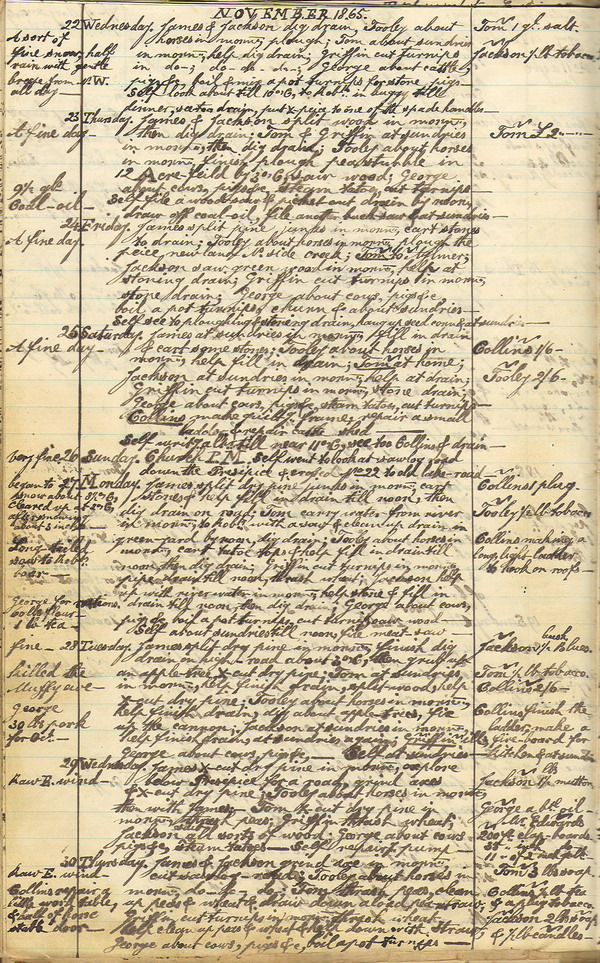 NOVEMBER 1865.
22 Wednesday. James & Jackson dig drain, Tooley about
horses in morn, plough; Tom about sundries
in morn, help dig drain; Griffin cut turnips
in do-; do- do-; George about cattle,
pigs &c, boil & mix a pot turnips for store pigs-
Self look about till 10 o'C, to Robt. in buggy till
dinner, see to drain, put x-peice to one of the spade handles-
A sort of
fine snow, half
rain with gentle
breeze from N.W.
all day-
Tom 1 gl. salt.
Jackson ½ lb tobacco
23 Thursday. James & Jackson split wood in morn,
then dig drain; Tom & Griffin at sundries
in morn, then dig drain; Tooley about horses
in morn, finish plough peastubble in
12 Acre feild by 3 o'C, wood; George
about cows, pigs &c, steam tatoes, cut turnips-
Self file a woodsaw & picket out drain by noon,
draw off coal-oil, file another buck saw & at sundries-
A fine day-
9½ gls
Coal-oil-
Tom £2
24 Friday. James split pine junks in morn, cart stones
to drain; Tooley about horses in morn, plough the
peice new land N. side creek; Tom to Aylmer;
Jackson saw green wood in morn, help at
stoning drain; Griffin cut turnips in morn,
stone drain; George about cows, pigs &c
boil a pot turnips, churn & about sundries-
Self see to ploughing & stoneing drain, hang up seed corn & at sundries-
A fine day.
25 Saturday. James at sundries in morn, fill in drain
& cart some stones; Tooley about horses in
morn, help fill in drain; Tom at home;
Jackson at sundries in morn, help at drain;
Griffin cut turnips in morn, stone drain;
George about cows, pigs &c, steam tatoes, cut turnips-
Collins make frame, repair a small
ladder & repair cattle shed-
Self write till near 11 o'C, see to Collins & drain-
A fine day-
Collins 1/6-
Tooley 2/6-
very fine 26 Sunday. Church P.M. Self went to look at saw log road
down the Presipice & cross No 22 to old lake-road
27 Monday. James split dry pine junks in morn, cart
stones & help fill in drain till noon, then
dig drain on road; Tom carry water from river
in morn, to Robt. with a saw & clean up drain in
green-yard by noon, dig drain; Tooley about horses in
morn, cart tatoe tops & help fill in drain till
noon, then dig drain; Griffin cut turnips in morn,
pipe drain till noon, thrash wheat; Jackson help
up with river water in morn, help stone & fill in
drain till noon, then dig drain; George about cows,
pigs &c, boil a pot turnips, cut turnips & saw wood-
Self about sundries till noon, file meat-saw-
began to
snow about
cleared up at
afternoon,
about 3 inches
Long-tailed
sow to Robts
boar-
George for rations.
1 lb tea-
Collins 1 plug-
Tooley ½ lb tobacco
Collins making a
long, light ladder
to hook on roofs-
28 Tuesday. James split dry pine in morn, finish dig
drain on high road about 3 o'C, then grub up
an apple tree, x-cut dry pine; Tom at sundries
in morn, help finish drain, split wood, help
x-cut dry pine; Tooley about horses in morn,
help finish drain, dig about apple trees, fix
up the cannon; Jackson at sundries in morn,
help finish drain, at sundries again;
George about cows, pigs &c- Self at sundries-
fine-
killed the
Muffy ave-
George
30 lbs pork
for Oct.-
Jackson 1 p. buck gloves.
Tom ½ lb tobacco.
Collins 2/6-
Collins finish the
ladder, make
fire-board for
Kitchen & at sundries
29 Wednesday. James x-cut dry pine in morn, explore
below Presipice for a road, grind axes
& x-cut dry pine; Tooley about horses in morn,
then with James- Tom x-cut dry pine in
morn, thrash peas; Griffin thrash wheat;
Jackson saw all sorts of wood; George about cows
pigs &c, steam tatoes- Self repair pump-
Raw E. wind
Jackson lbs mutton
George a btl oil-
Mr. Edwards
200 ft clap-boards
30 Thursday. James & Jackson grind axe in morn,
cut sawlog-road; Tooley about horses in
morn, do- do- do; Tom thrash peas, clean
up peas & wheat & draw down a load pea straw;
Griffin cut turnips in morn, thrash wheat,
help clean up peas & wheat & help down with straw-
George about cows, pigs &c, boil a pot turnips-
Raw E. wind-
Collins repair a
little work table,
& sill of horse
stable door-
Tom 3 lbs soap.
Collins ½ lb tea
& a plug tobacco
Jackson 2 lbs soap
& ½ lb candles-